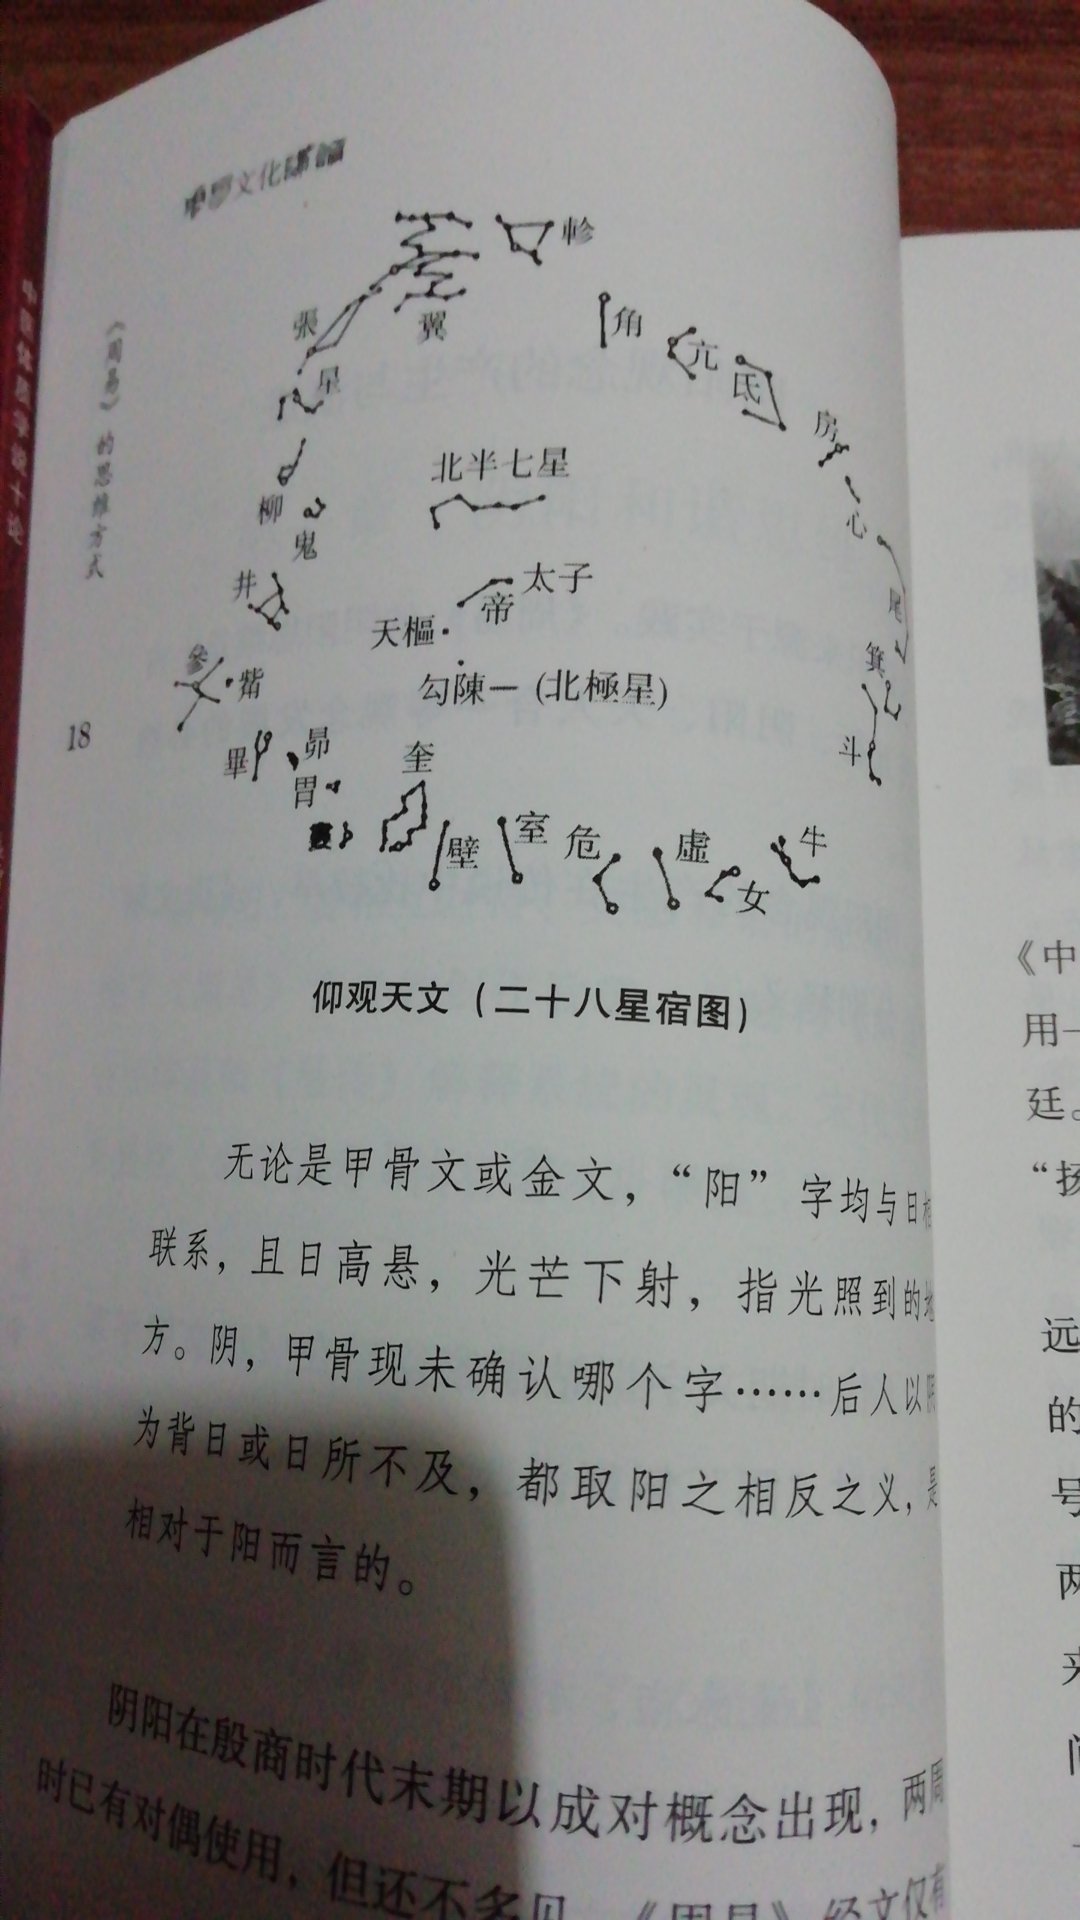 文化
《周易》的思维方式
18
軫
角
亢
氐
房
心
尾
箕
斗
牛
女
虛
危
室
壁
奎
胃
昴
畢
觜
參
井
鬼
柳
星
張
翼
北半七星
太子
帝
天樞
勾陳一 (北極星)
仰观天文（二十八星宿图）
无论是甲骨文或金文，“阳”字均与日相
联系，且日高悬，光芒下射，指光照到的地
方。阴，甲骨现未确认哪个字……后人以阴
为背日或日所不及，都取阳之相反之义，是
相对于阳而言的。
阴阳在殷商时代末期以成对概念出现，两周
时已有对偶使用，但还不多见，《周易》经文仅有
《中
用一
廷。
“扬
远
的
号
两
来